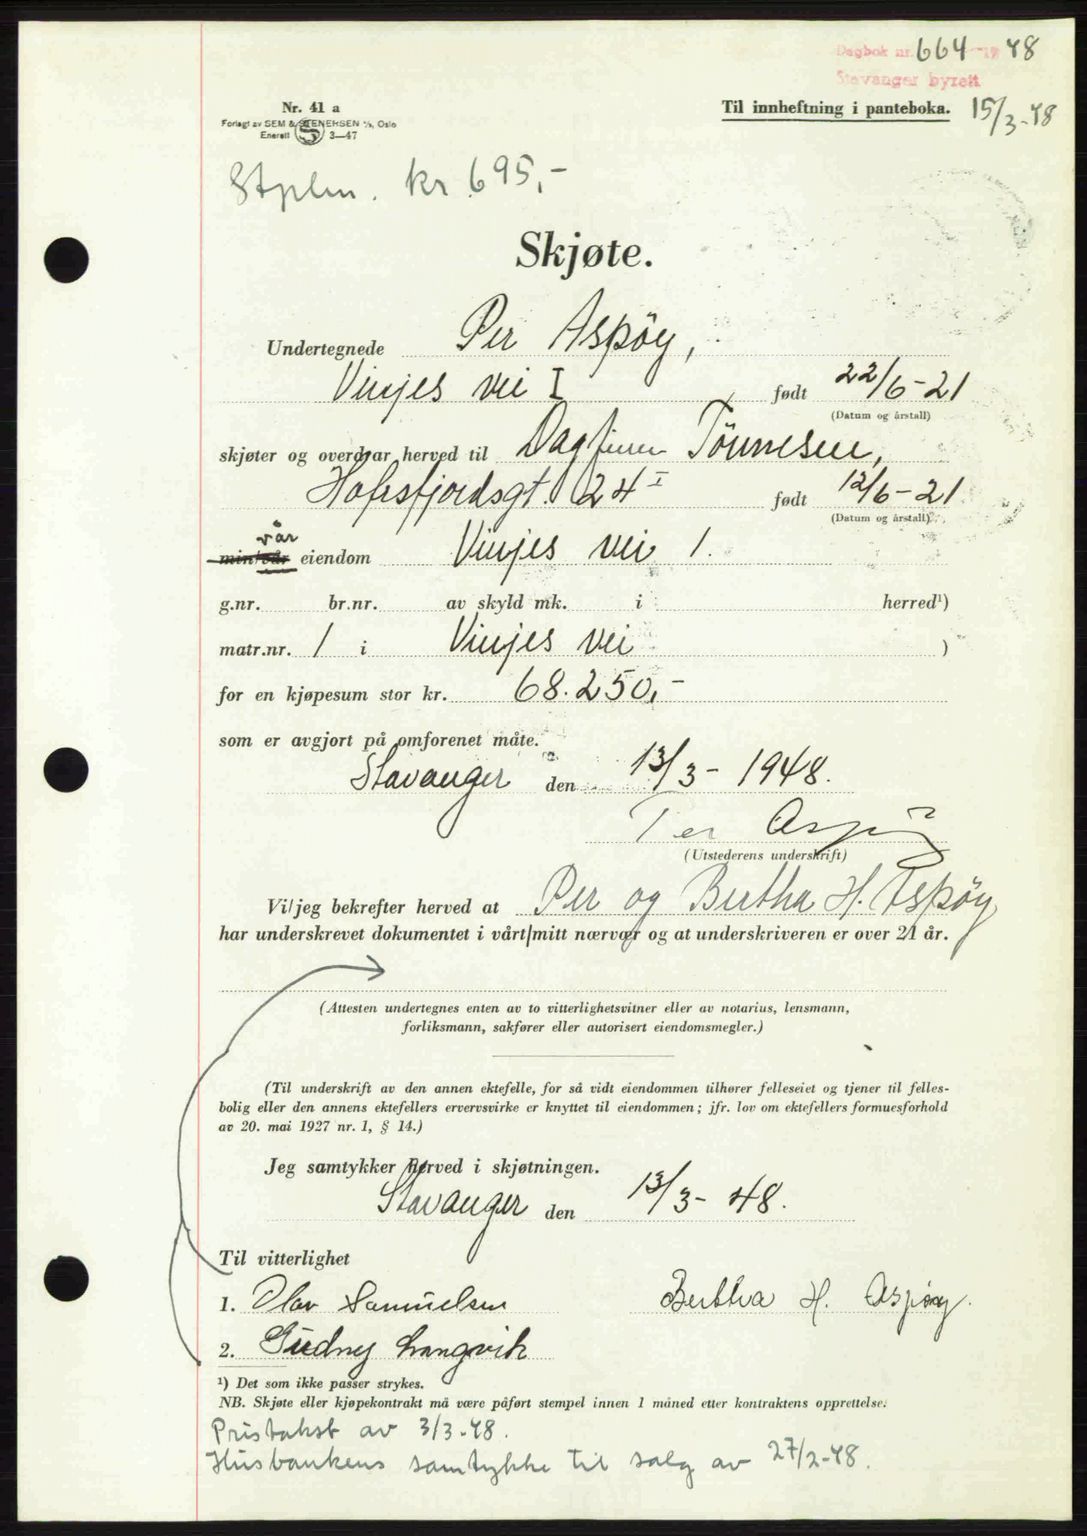 Dagbok nr. 664 - 19 48
Stavanger byrett
15/3-48
Til innheftning i panteboka.
Nr. 41 a
Forlagt av SEM & STENERSEN A/S, Oslo
Enerett S 3—47
Stplm. kr 695,-
Skjøte.
Undertegnede Per Aspöy,
Vinjes vei I født 22/6-21
(Datum og årstall)
skjøter og overdrar herved til Dagfinn Tönnesen,
Hafrsfjordsgt. 24 I født 12/6-21
(Datum og årstall)
vår
min/vår eiendom Vinjes vei 1.
g.nr. br.nr. av skyld mk. i herred¹)
matr.nr. 1 i Vinjes vei )
for en kjøpesum stor kr. 68.250,-
som er avgjort på omforenet måte.
Stavanger den 13/3- 1948.
Per Aspöy
(Utstederens underskrift)
Vi/jeg bekrefter herved at Per og Bertha H. Aspöy
har underskrevet dokumentet i vårt/mitt nærvær og at underskriveren er over 21 år.
(Attesten undertegnes enten av to vitterlighetsvitner eller av notarius, lensmann,
forliksmann, sakfører eller autorisert eiendomsmegler.)
(Til underskrift av den annen ektefelle, for så vidt eiendommen tilhører felleseiet og tjener til felles-
bolig eller den annens ektefellers ervervsvirke er knyttet til eiendommen; jfr. lov om ektefellers formuesforhold
av 20. mai 1927 nr. 1, § 14.)
Jeg samtykker herved i skjøtningen.
Stavanger den 13/3- 48.
Til vitterlighet
1. Olav Samuelsen Bertha H. Aspöy.
2. Gudny Langvik
¹) Det som ikke passer strykes.
NB. Skjøte eller kjøpekontrakt må være påført stempel innen 1 måned etter kontraktens opprettelse.
Pristakst av 3/3-48.
Husbankens samtykke til salg av 27/2-48.